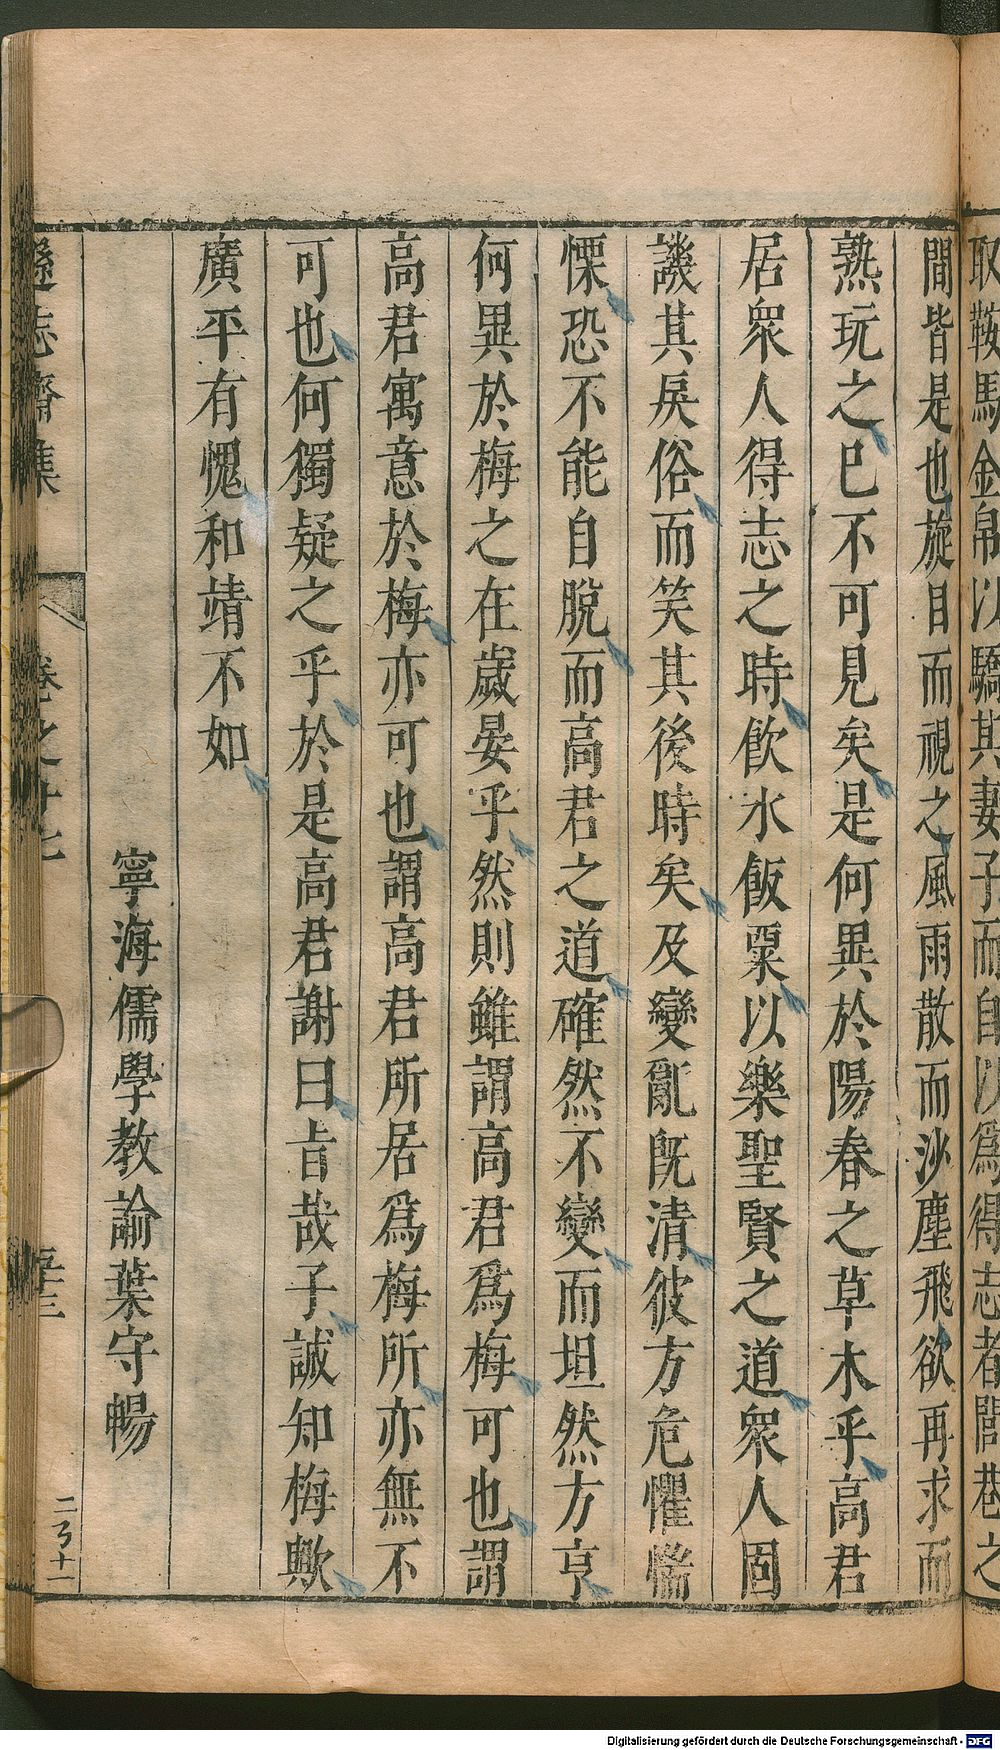 取鞍馬金帛以驕其妻子而自以爲得志者閭巷之
間皆是也旋目而視之風雨散而沙塵飛欲再求而
熟玩之已不可見矣是何異於陽春之草木乎高君
居衆人得志之時飮水飯粟以樂聖賢之道衆人固
譏其戾俗而笑其後時矣及變亂旣淸彼方危懼惴
慄恐不能自脫而高君之道確然不變而坦然方亨
何異於梅之在歲晏乎然則雖謂高君爲梅可也謂
高君寓意於梅亦可也謂高君所居爲梅所亦無不
可也何獨疑之乎於是高君謝曰旨哉子誠知梅歟
廣平有愧和靖不如
寧海儒學教諭葉守暢
遜志齋集 卷之十七
二弓十一
Digitalisierung gefördert durch die Deutsche Forschungsgemeinschaft - DFG